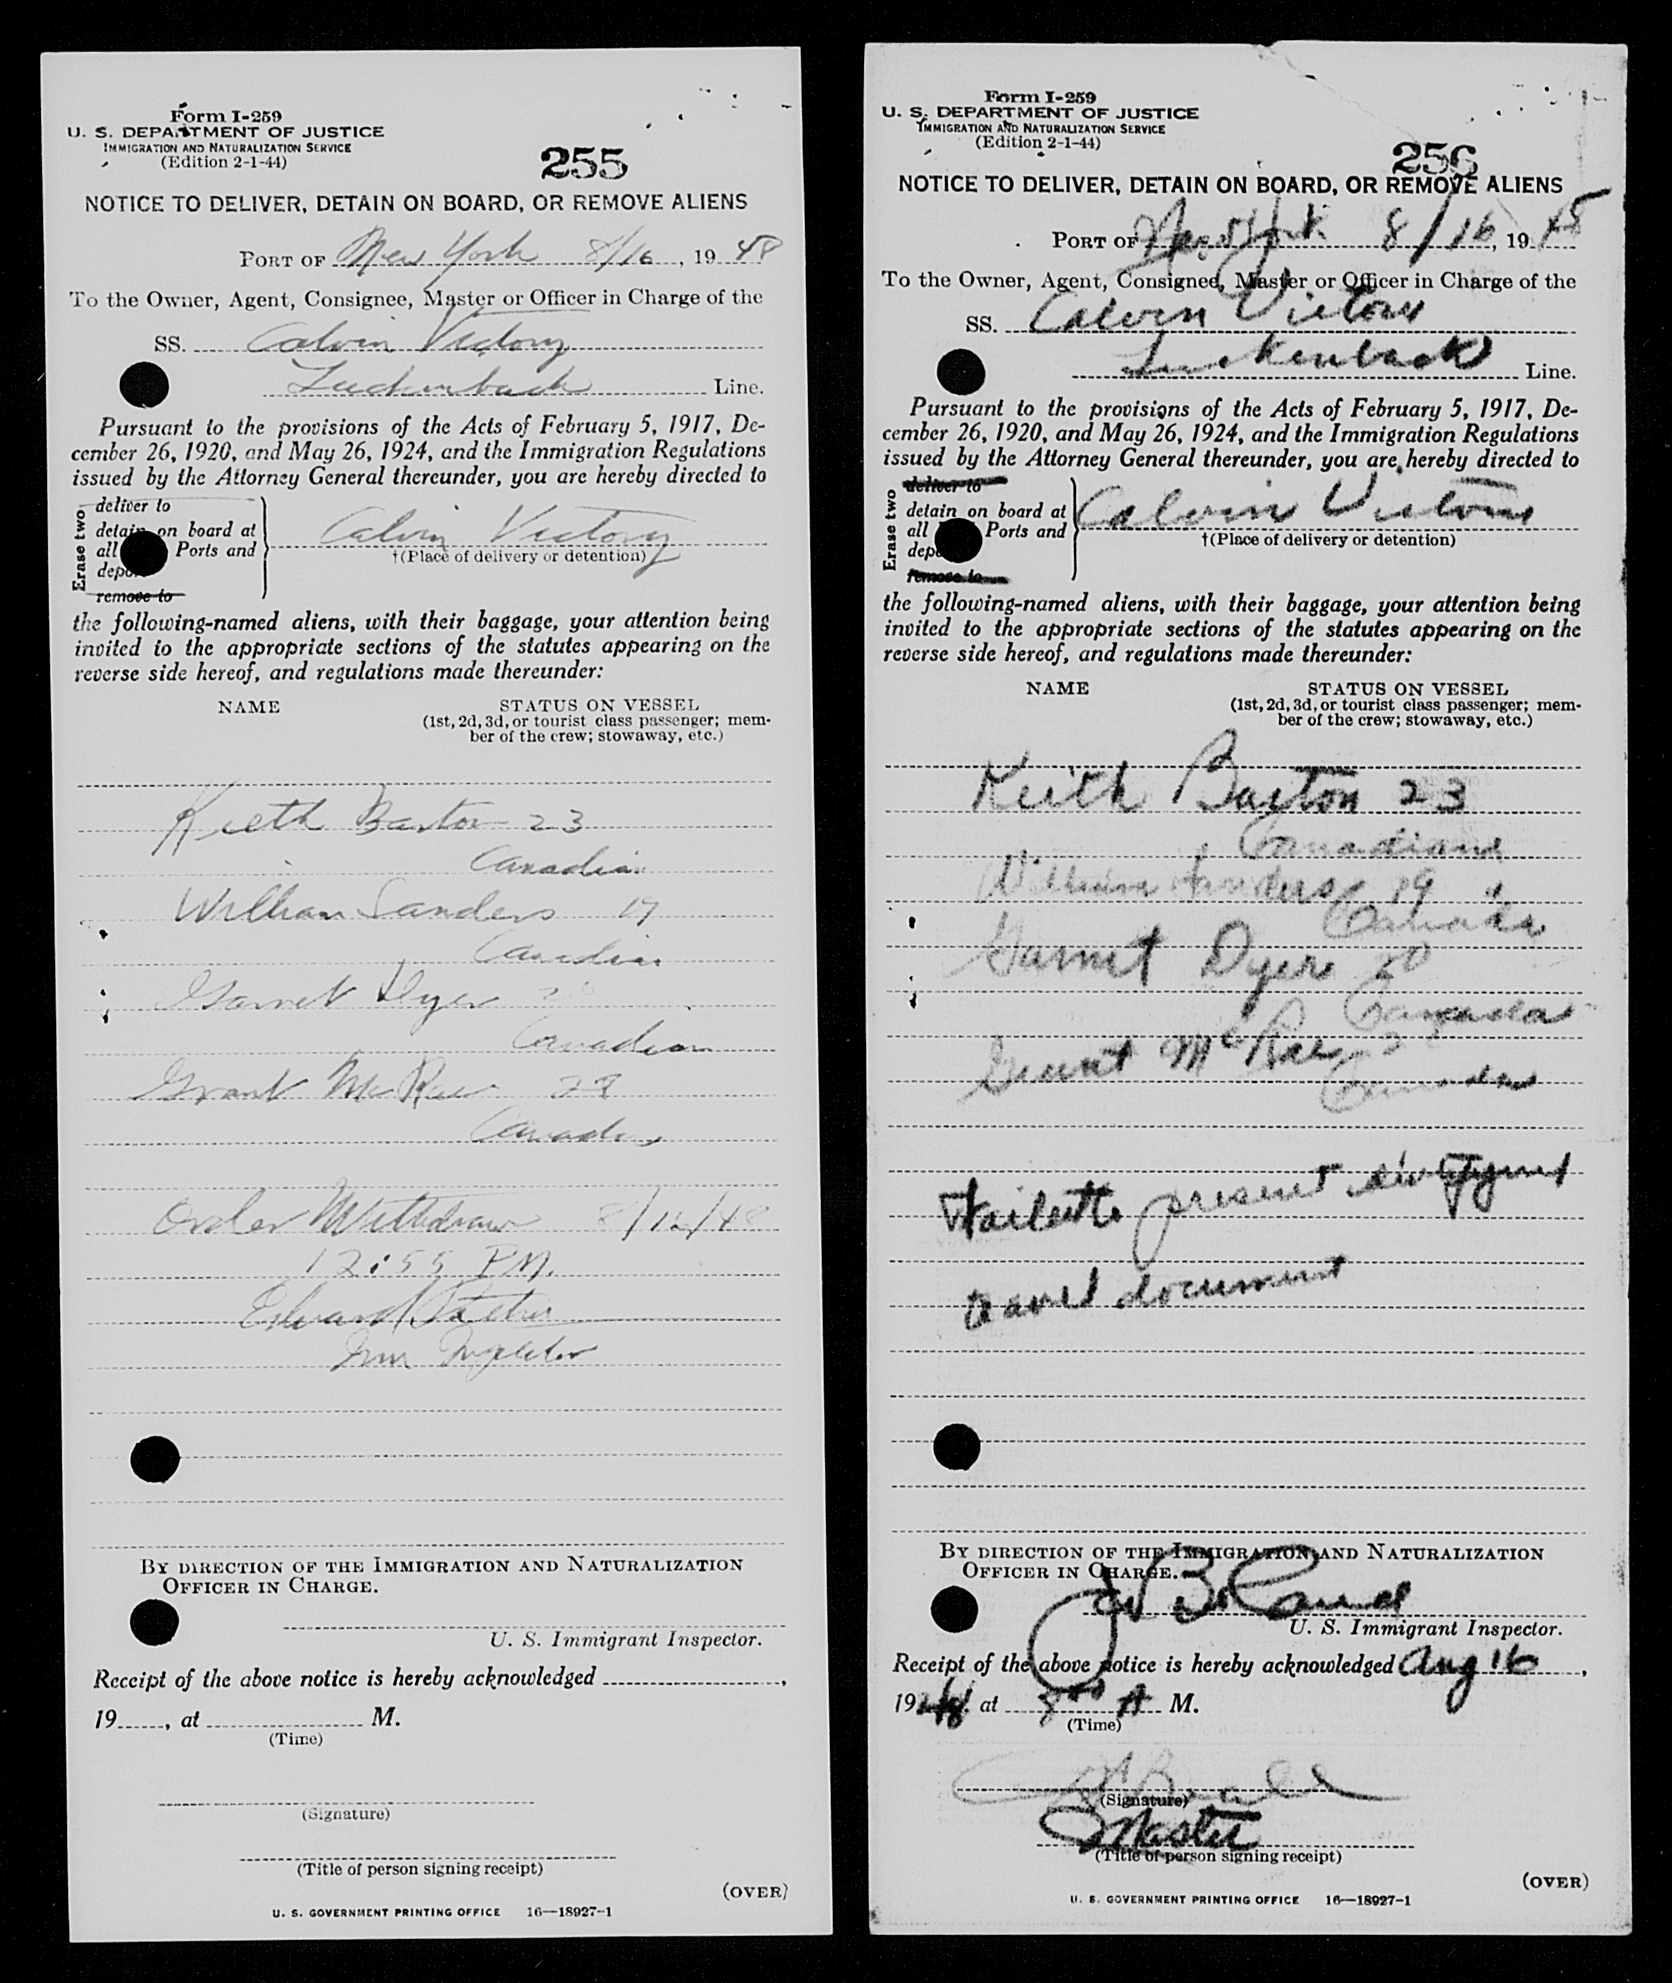 Form I-259
U. S. DEPARTMENT OF JUSTICE
IMMIGRATION AND NATURALIZATION SERVICE
(Edition 2-1-44)
255
NOTICE TO DELIVER, DETAIN ON BOARD, OR REMOVE ALIENS
PORT OF New York 8/16, 1948
To the Owner, Agent, Consignee, Master or Officer in Charge of the
SS. Calvin Victory
Luckenbach Line.
Pursuant to the provisions of the Acts of February 5, 1917, De-
cember 26, 1920, and May 26, 1924, and the Immigration Regulations
issued by the Attorney General thereunder, you are hereby directed to
Erase two
deliver to
detain on board at
all Ports and
remove to
Calvin Victory
†(Place of delivery or detention)
the following-named aliens, with their baggage, your attention being
invited to the appropriate sections of the statutes appearing on the
reverse side hereof, and regulations made thereunder:
NAME
STATUS ON VESSEL
(1st, 2d, 3d, or tourist class passenger; mem-
ber of the crew; stowaway, etc.)
Kieth 23
Canadian
William Sanders
Canadian
Garnet Dyer
Canadian
Grant McRae 28
Order Withdrawn
12:55 P.M.
Edward
Imm
BY DIRECTION OF THE IMMIGRATION AND NATURALIZATION
OFFICER IN CHARGE.
U. S. Immigrant Inspector.
Receipt of the above notice is hereby acknowledged ,
19 , at M.
(Time)
(Signature)
(Title of person signing receipt)
(OVER)
U. S. GOVERNMENT PRINTING OFFICE 16—18927-1
Form I-259
U. S. DEPARTMENT OF JUSTICE
IMMIGRATION AND NATURALIZATION SERVICE
(Edition 2-1-44)
256
NOTICE TO DELIVER, DETAIN ON BOARD, OR REMOVE ALIENS
PORT OF New York 8/16, 1948
To the Owner, Agent, Consignee, Master or Officer in Charge of the
SS. Calvin Victory
Luckenback Line.
Pursuant to the provisions of the Acts of February 5, 1917, De-
cember 26, 1920, and May 26, 1924, and the Immigration Regulations
issued by the Attorney General thereunder, you are hereby directed to
Erase two
deliver to
detain on board at
all Ports and
remove to
Calvin Victory
†(Place of delivery or detention)
the following-named aliens, with their baggage, your attention being
invited to the appropriate sections of the statutes appearing on the
reverse side hereof, and regulations made thereunder:
NAME
STATUS ON VESSEL
(1st, 2d, 3d, or tourist class passenger; mem-
ber of the crew; stowaway, etc.)
Keith 23
William Sanders 19
Canada
Garnet Dyer 20
Canada
Grant McRae
Canada
Fail to present
travel document
BY DIRECTION OF THE IMMIGRATION AND NATURALIZATION
OFFICER IN CHARGE.
U. S. Immigrant Inspector.
Receipt of the above notice is hereby acknowledged Aug 16,
1948, at 8 00 A M.
(Time)
(Signature)
Master
(Title of person signing receipt)
(OVER)
U. S. GOVERNMENT PRINTING OFFICE 16—18927-1